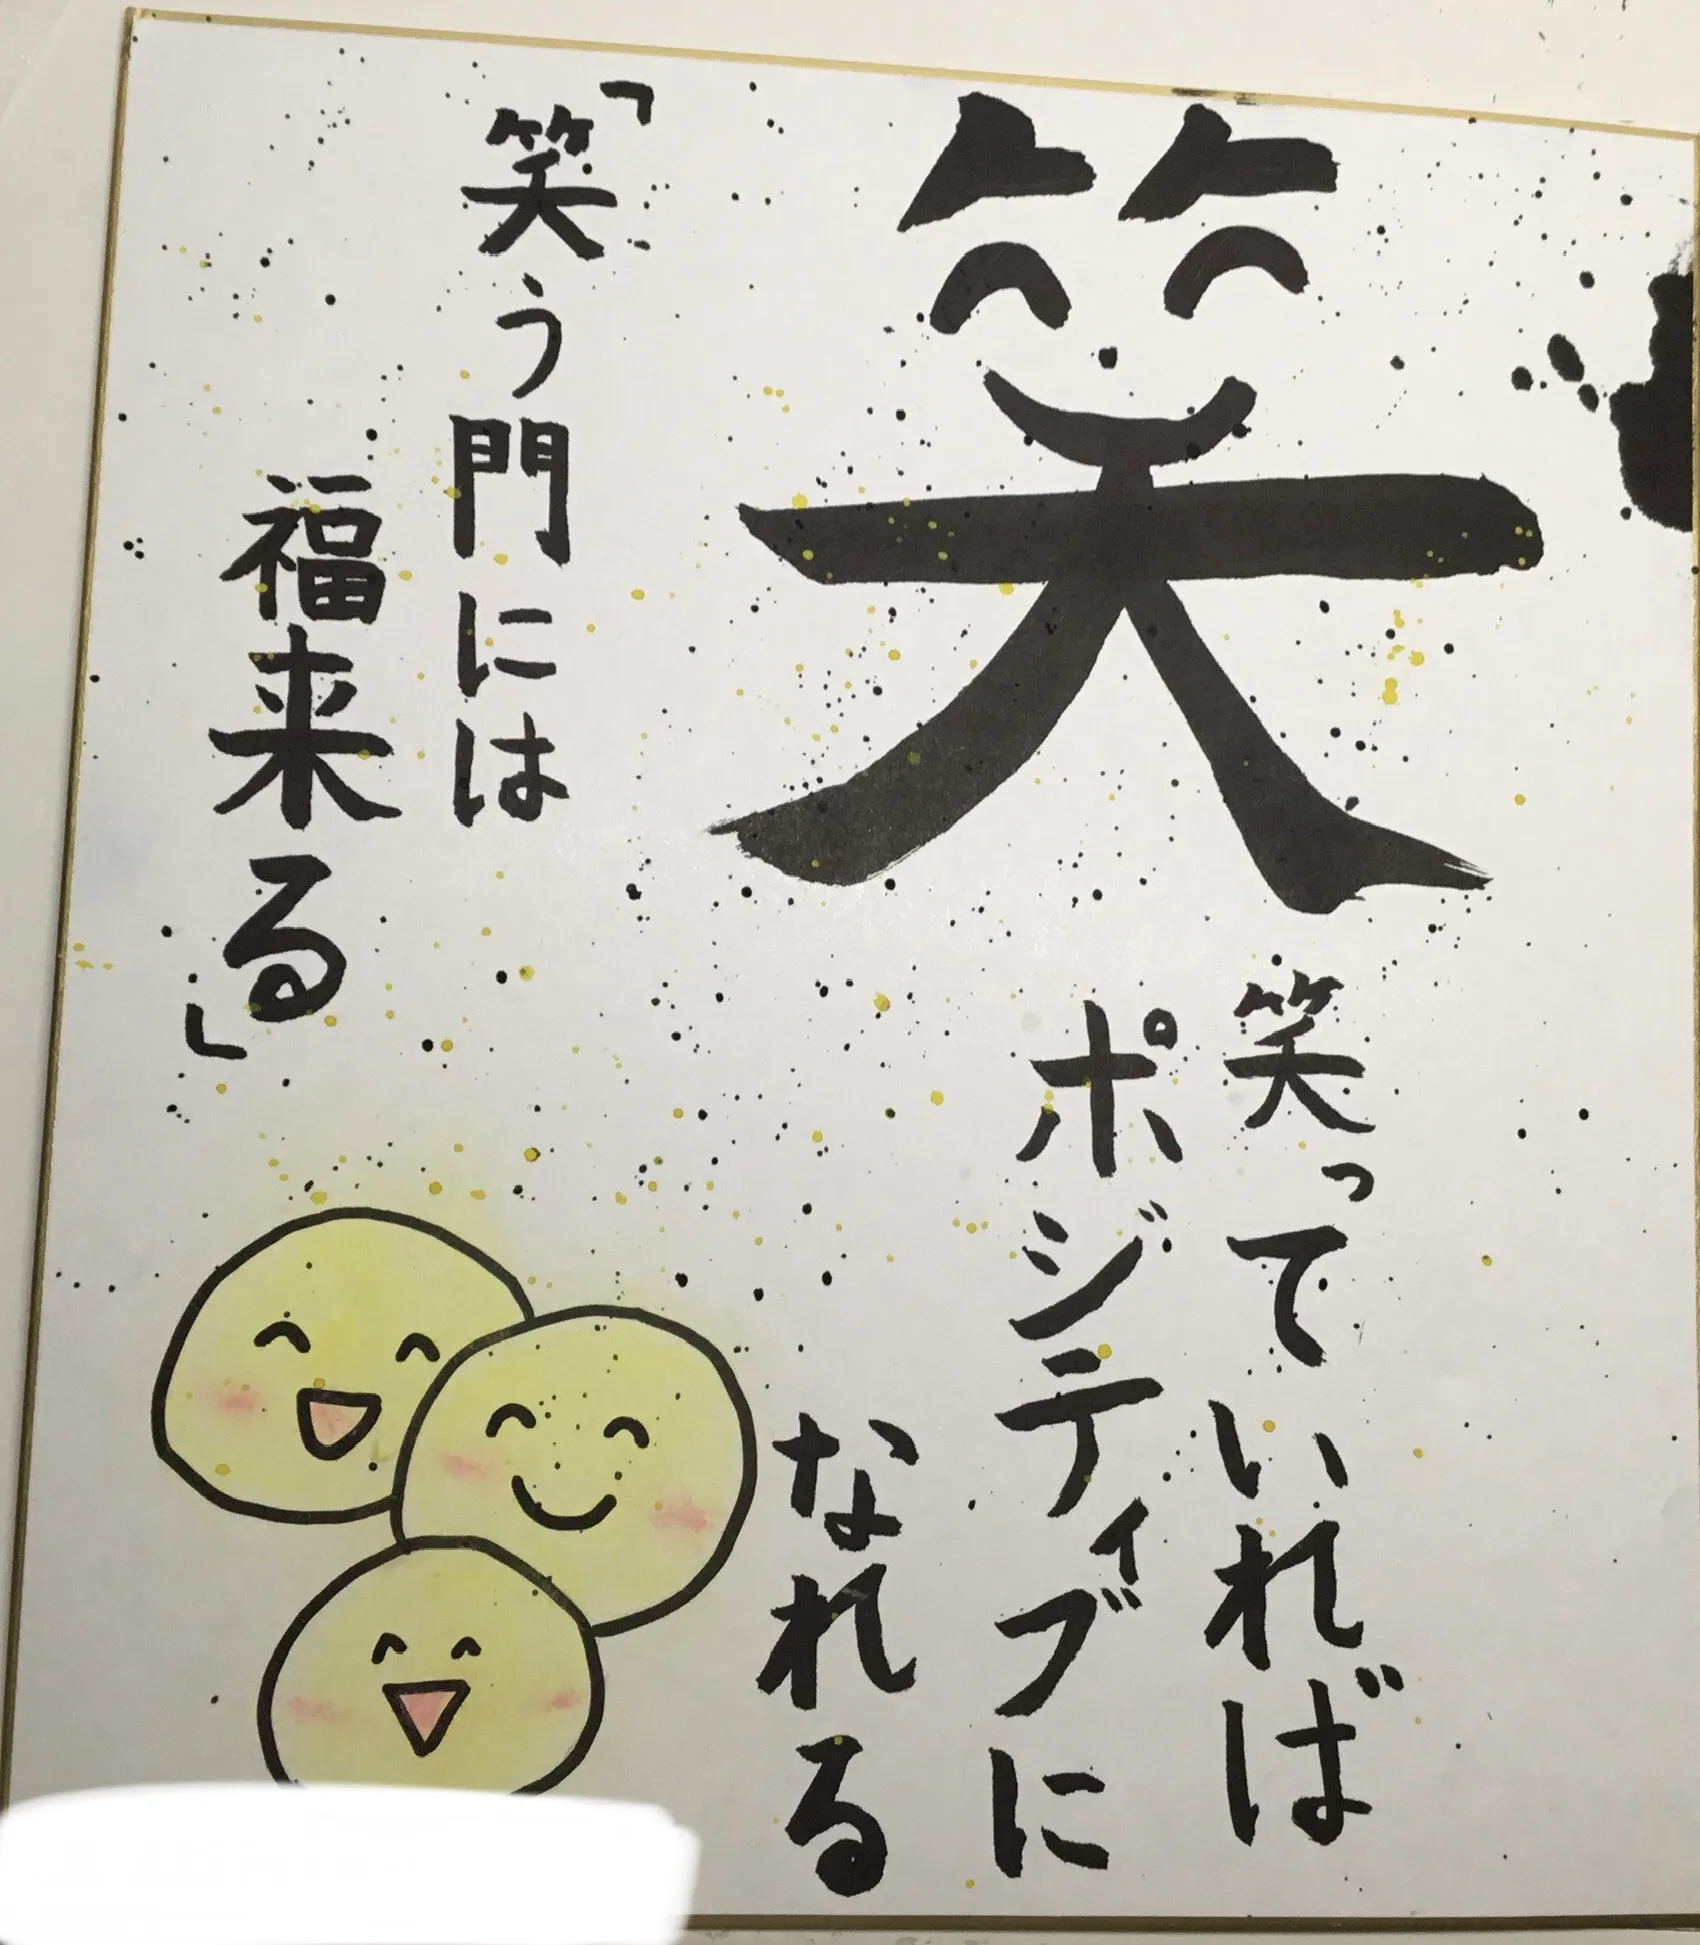 笑
笑っていれば
ポジティブに
なれる
「笑う門には
福来る」